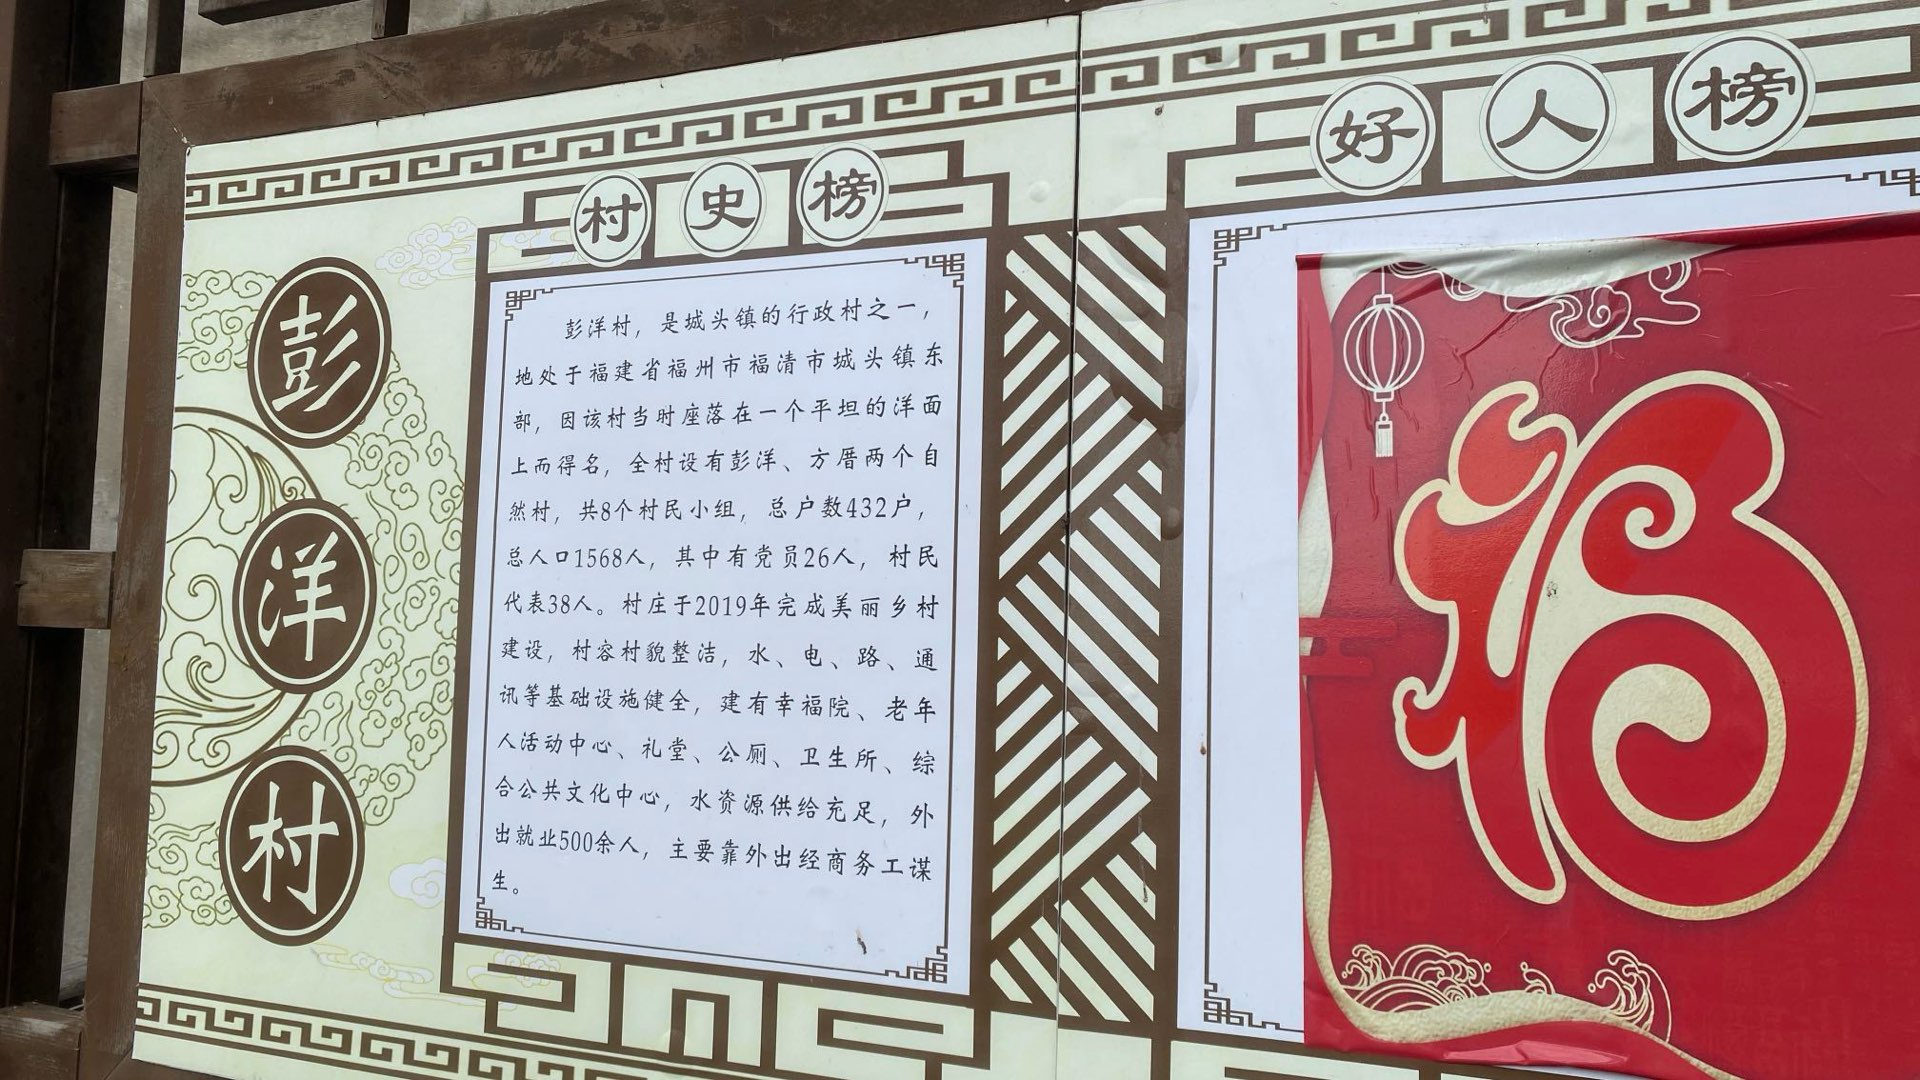 彭洋村
村史榜
彭洋村，是城头镇的行政村之一，
地处于福建省福州市福清市城头镇东
部，因该村当时座落在一个平坦的洋面
上而得名，全村设有彭洋、方厝两个自
然村，共8个村民小组，总户数432户，
总人口1568人，其中有党员26人，村民
代表38人。村庄于2019年完成美丽乡村
建设，村容村貌整洁，水、电、路、通
讯等基础设施健全，建有幸福院、老年
人活动中心、礼堂、公厕、卫生所、综
合公共文化中心，水资源供给充足，外
出就业500余人，主要靠外出经商务工谋
生。
好人榜
福